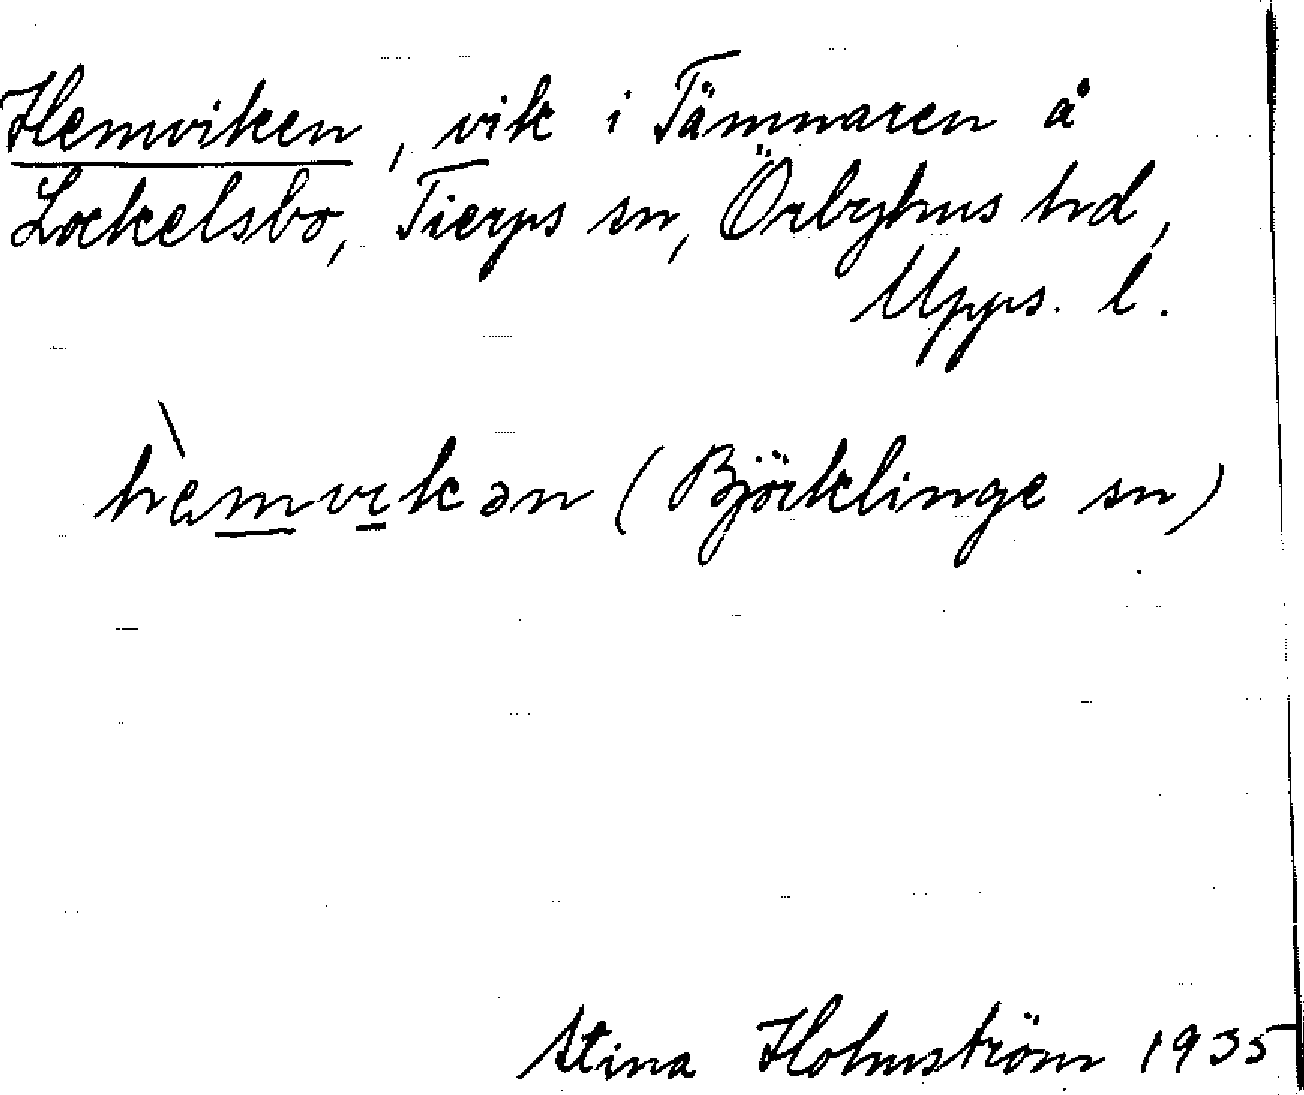 Hemviken, vik i Tämnaren å
Lockelsbo, Tierps sn, Örbyhus hd,
Upps. l.
hèmvikən (Björklinge sn)
Stina Holmström 1935